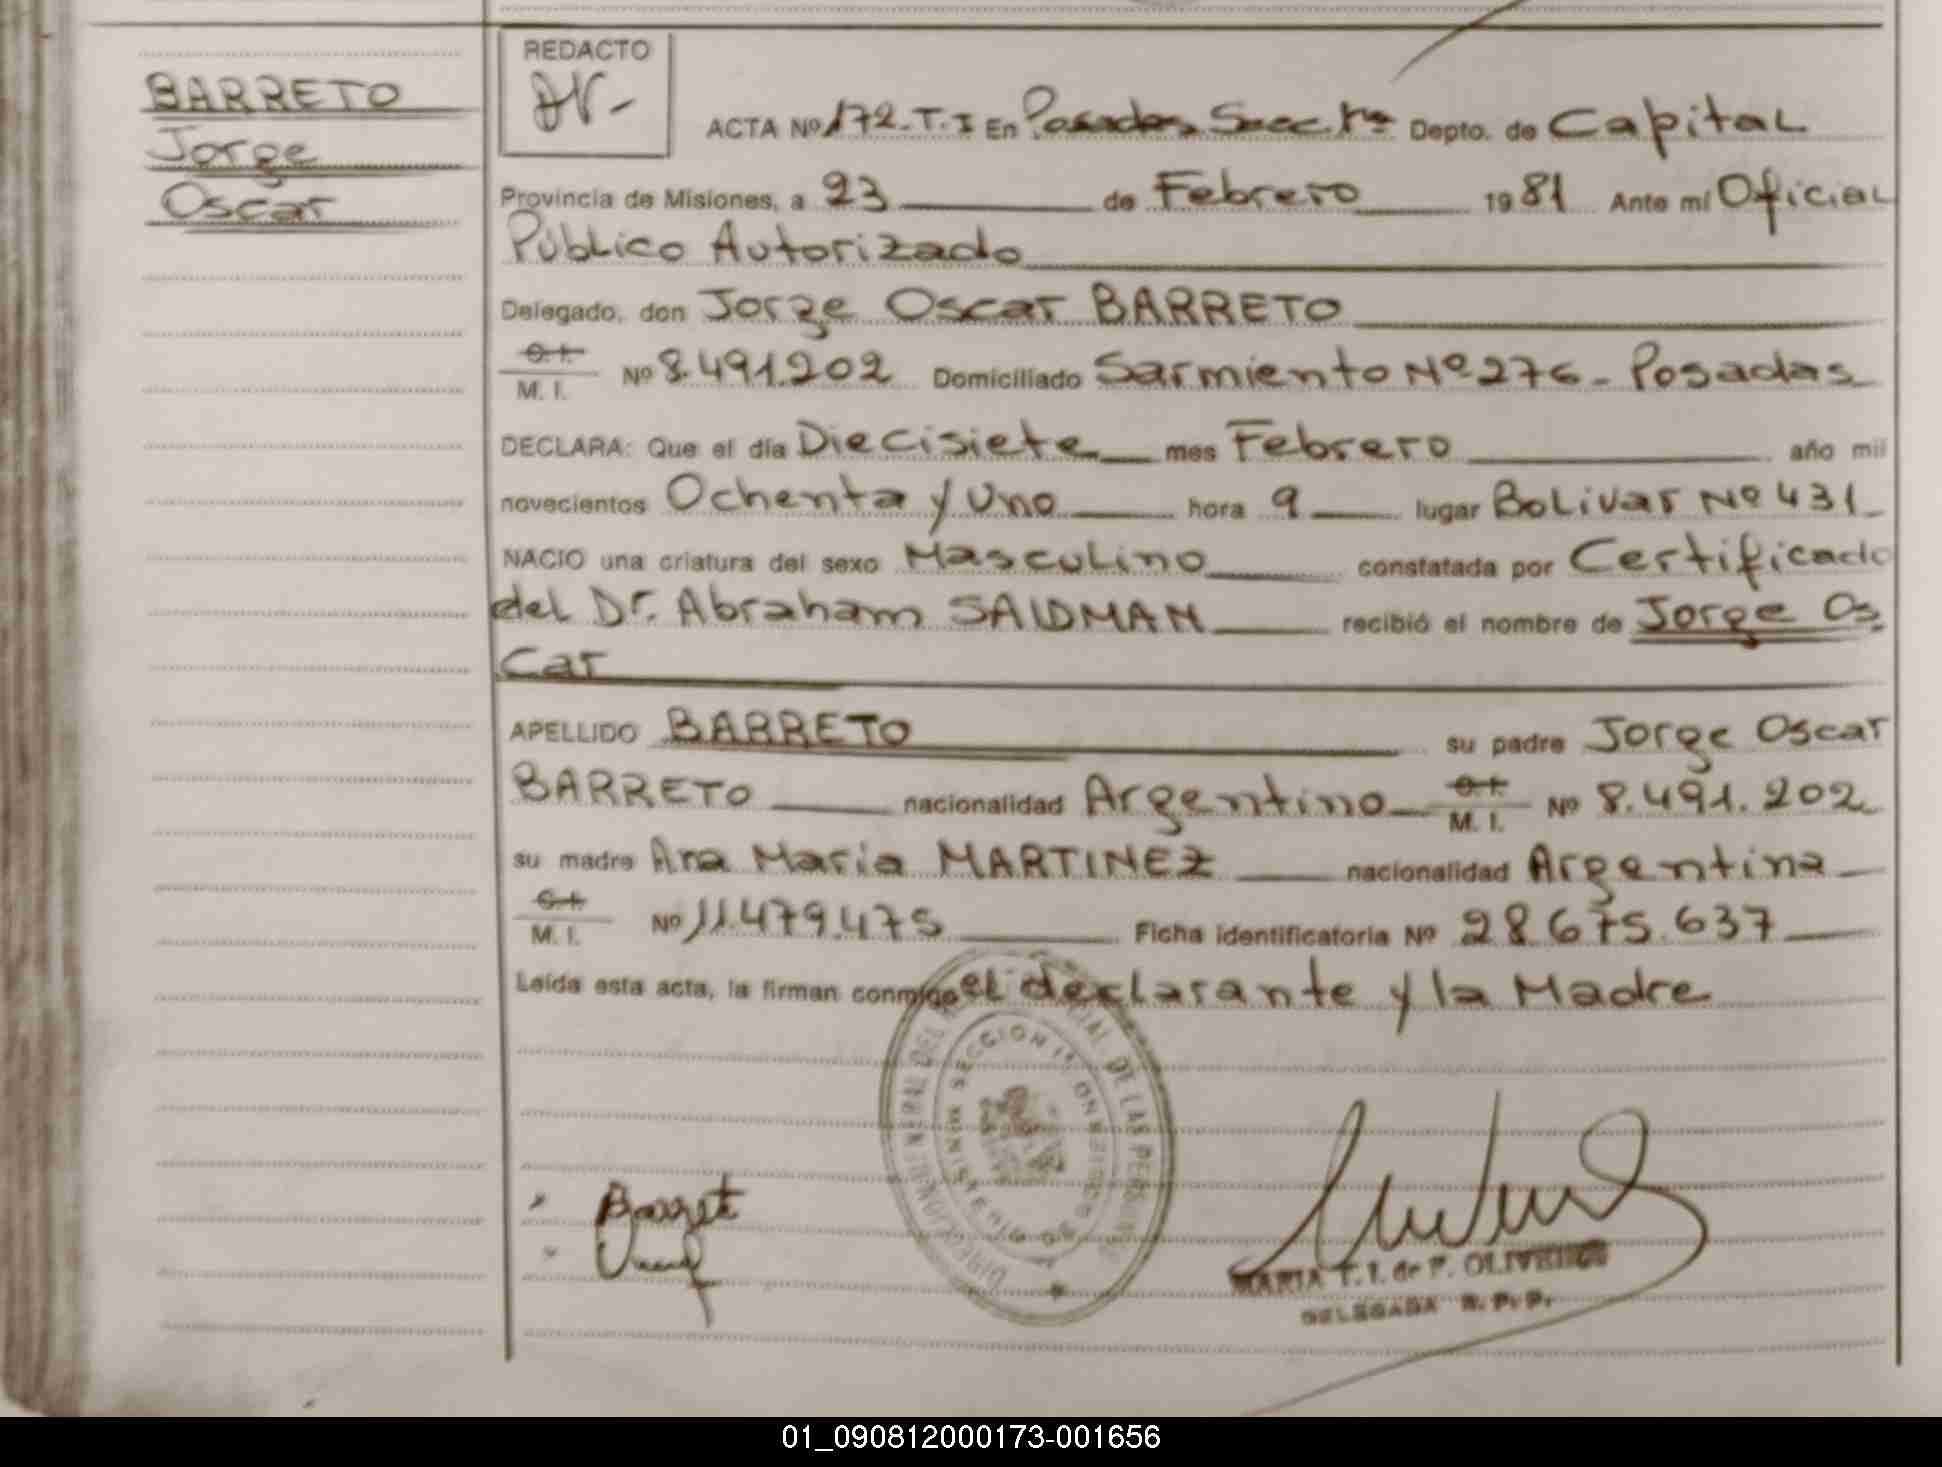 BARRETO
Jorge
Oscar
REDACTO
ACTA Nº 172-T.I En Posadas Secc. 1ra Depto. de Capital
Provincia de Misiones, a 23 de Febrero 1981 Ante mí Oficial
Público Autorizado
Delegado, don Jorge Oscar BARRETO
C. I.
M. I. Nº 8.491.202 Domiciliado Sarmiento Nº 276 - Posadas
DECLARA: Que el día Diecisiete mes Febrero año mil
novecientos Ochenta y Uno hora 9 lugar Bolivar Nº 431
NACIO una criatura del sexo Masculino constatada por Certificado
del Dr. Abraham SAIDMAN recibió el nombre de Jorge Os
car
APELLIDO BARRETO su padre Jorge Oscar
BARRETO nacionalidad Argentino C. I. M. I. Nº 8.491.202
su madre Ana Maria MARTINEZ nacionalidad Argentina
C. I.
M. I. Nº 11.479.475 Ficha identificatoria Nº 28.675.637
Leída esta acta, la firman conmigo el declarante y la Madre
SECCION 1ª
DE LAS PERSONAS
MINISTERIO DE GOBIERNO
Barreto
MARIA T. I. de P. OLIVEIRA
DELEGADA R. P. P.
01_090812000173-001656